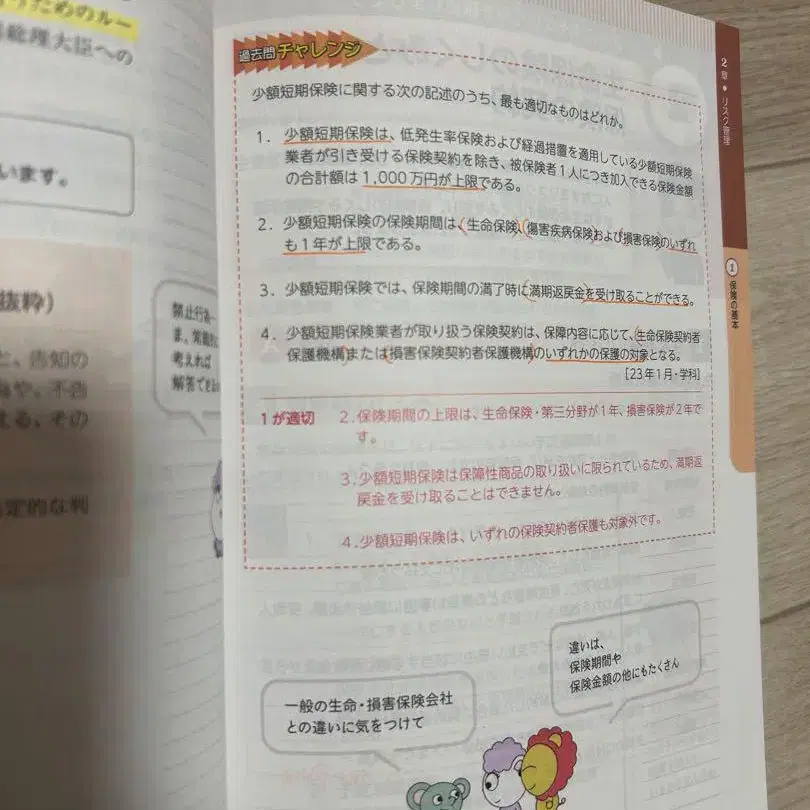 うためのルー
総理大臣への
います。
抜粋)
と、告知の
える、その
定的な判
禁止行為
ま、常識的に
考えれば
解答でき
過去問チャレンジ
少額短期保険に関する次の記述のうち、最も適切なものはどれか。
1. 少額短期保険は、低発生率保険および経過措置を適用している少額短期保険
業者が引き受ける保険契約を除き、被保険者1人につき加入できる保険金額
の合計額は1,000万円が上限である。
2. 少額短期保険の保険期間は、生命保険、傷害疾病保険および損害保険のいずれ
も1年が上限である。
3. 少額短期保険では、保険期間の満了時に満期返戻金を受け取ることができる。
4. 少額短期保険業者が取り扱う保険契約は、保障内容に応じて、生命保険契約者
保護機構または損害保険契約者保護機構のいずれかの保護の対象となる。
[23年1月・学科]
1が適切 2. 保険期間の上限は、生命保険・第三分野が1年、損害保険が2年で
す。
3. 少額短期保険は保障性商品の取り扱いに限られているため、満期返
戻金を受け取ることはできません。
4. 少額短期保険は、いずれの保険契約者保護も対象外です。
違いは、
保険期間や
保険金額の他にもたくさん
一般の生命・損害保険会社
との違いに気をつけて
2章・リスク管理
1 保険の基本